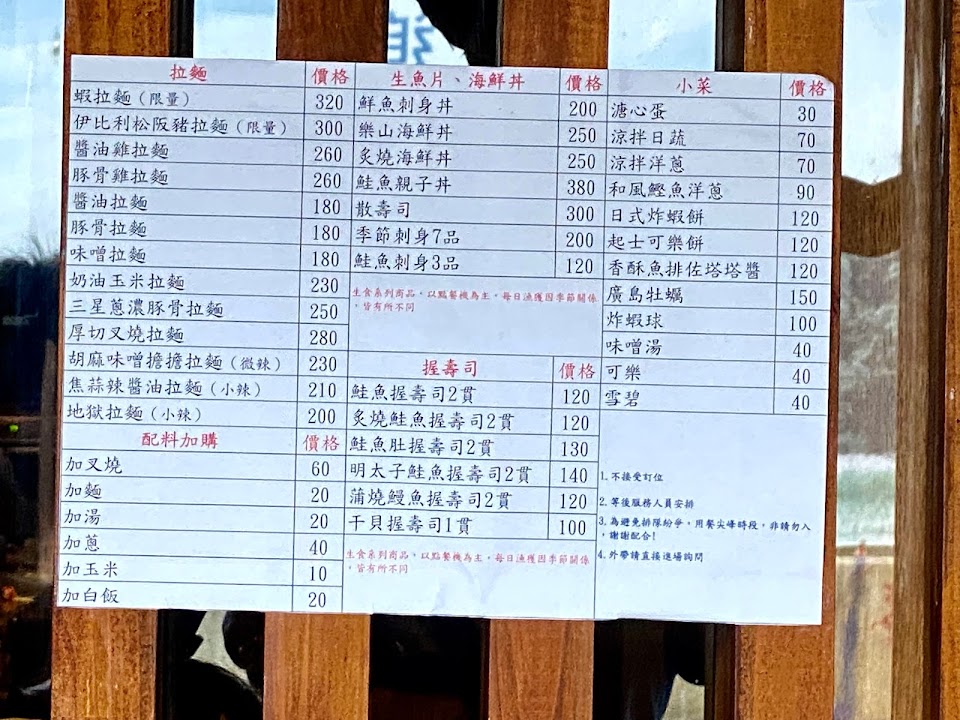 拉麵 價格
蝦拉麵(限量) 320
伊比利松阪豬拉麵(限量) 300
醬油雞拉麵 260
豚骨雞拉麵 260
醬油拉麵 180
豚骨拉麵 180
味噌拉麵 180
奶油玉米拉麵 230
三星蔥濃豚骨拉麵 250
厚切叉燒拉麵 280
胡麻味噌擔擔拉麵(微辣) 230
焦蒜辣醬油拉麵(小辣) 210
地獄拉麵(小辣) 200
配料加購 價格
加叉燒 60
加麵 20
加湯 20
加蔥 40
加玉米 10
加白飯 20
生魚片、海鮮丼 價格
鮮魚刺身丼 200
樂山海鮮丼 250
炙燒海鮮丼 250
鮭魚親子丼 380
散壽司 300
季節刺身7品 200
鮭魚刺身3品 120
生食系列商品,以點餐機為主,每日漁獲因季節關係
,皆有所不同
握壽司 價格
鮭魚握壽司2貫 120
炙燒鮭魚握壽司2貫 120
鮭魚肚握壽司2貫 130
明太子鮭魚握壽司2貫 140
蒲燒鰻魚握壽司2貫 120
干貝握壽司1貫 100
生食系列商品,以點餐機為主,每日漁獲因季節關係
,皆有所不同
小菜 價格
溏心蛋 30
涼拌日蔬 70
涼拌洋蔥 70
和風鰹魚洋蔥 90
日式炸蝦餅 120
起士可樂餅 120
香酥魚排佐塔塔醬 120
廣島牡蠣 150
炸蝦球 100
味噌湯 40
可樂 40
雪碧 40
1. 不接受訂位
2. 等後服務人員安排
3. 為避免排隊紛爭,用餐尖峰時段,非請勿入
,謝謝配合!
4. 外帶請直接進場詢問